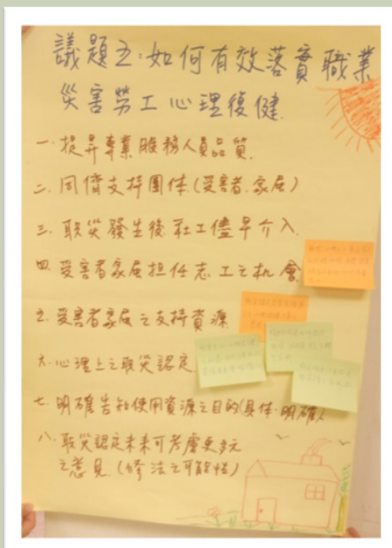 議題五:如何有效落實職業
災害勞工心理復健.
一.提昇專業服務人員品質.
二.同儕支持團体(受害者.家屬)
三.職災發生後.社工儘早介入.
四.受害者家屬担任志工之机會
五.受害者家屬之支持資源
六.心理上之職災認定
七.明確告知使用資源之目的(具体.明確)
八.職災認定未來可考慮更多元
之意見.(修法之可能性)